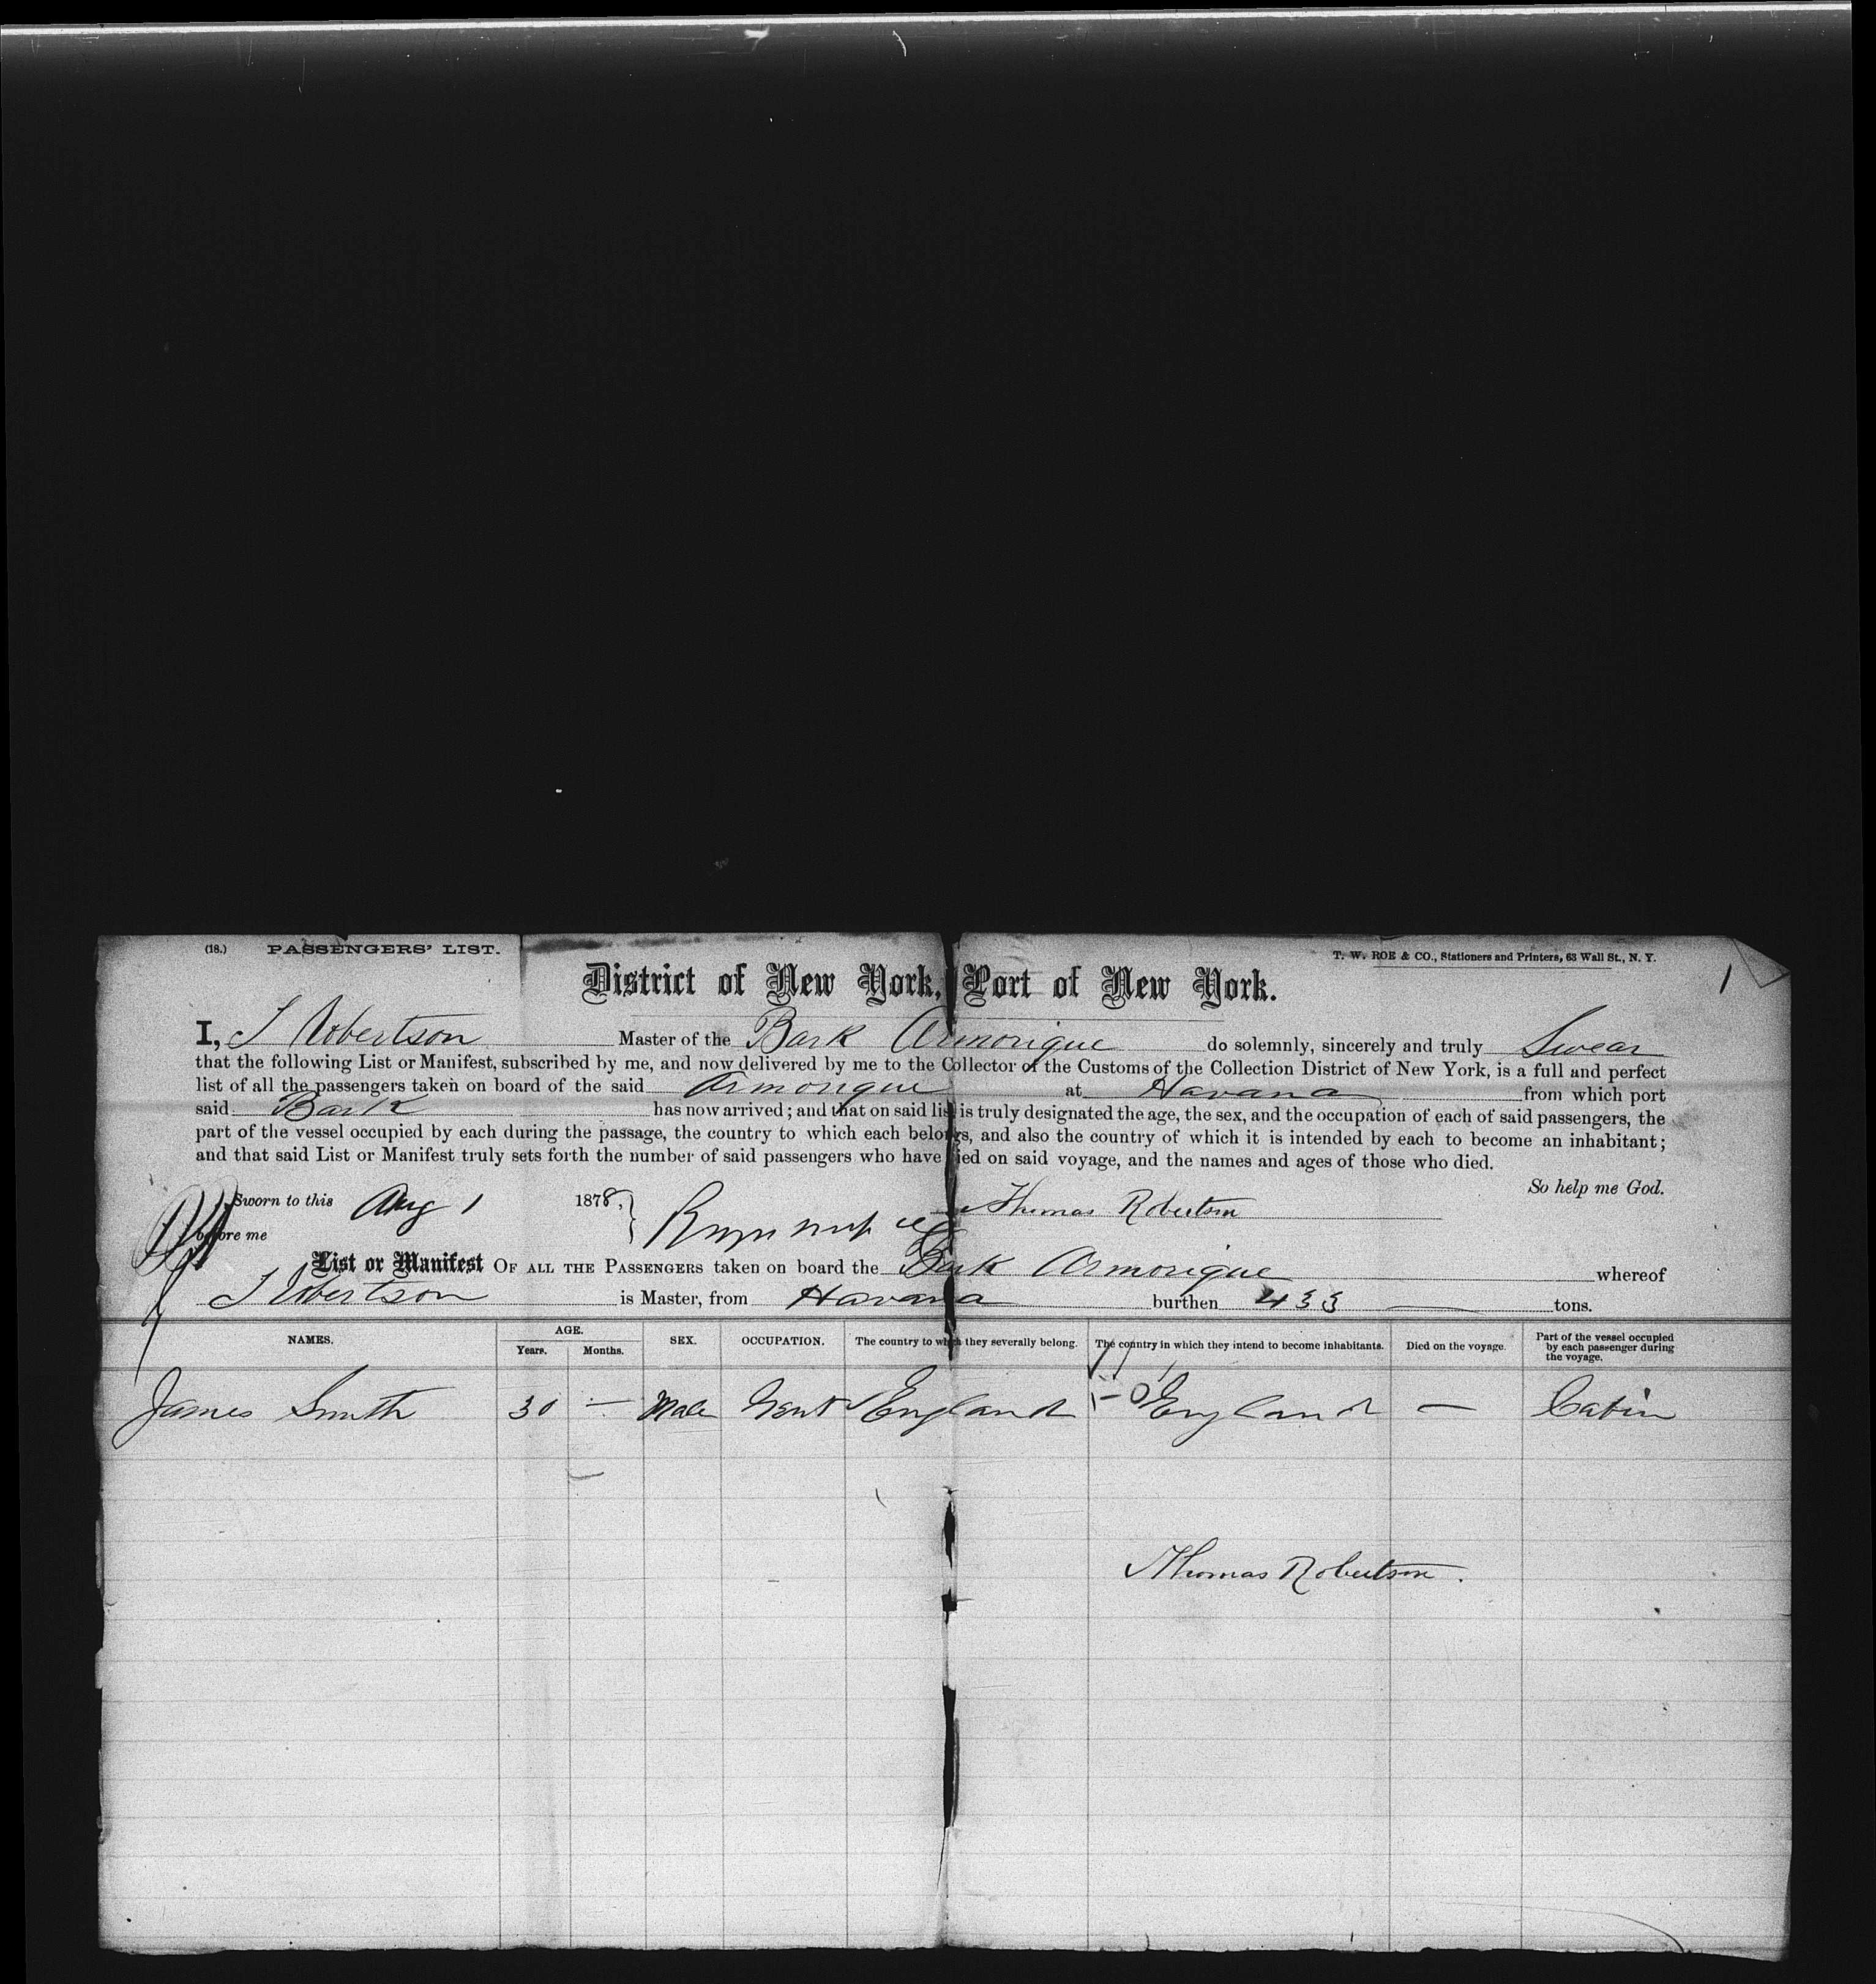 (18.) PASSENGERS' LIST.
T. W. ROE & CO., Stationers and Printers, 63 Wall St., N. Y.
1
District of New York, Port of New York.
I, T Robertson Master of the Bark Armorique do solemnly, sincerely and truly Swear
that the following List or Manifest, subscribed by me, and now delivered by me to the Collector of the Customs of the Collection District of New York, is a full and perfect
list of all the passengers taken on board of the said Armorique at Havana from which port
said Bark has now arrived; and that on said list is truly designated the age, the sex, and the occupation of each of said passengers, the
part of the vessel occupied by each during the passage, the country to which each belongs, and also the country of which it is intended by each to become an inhabitant;
and that said List or Manifest truly sets forth the number of said passengers who have died on said voyage, and the names and ages of those who died.
So help me God.
Sworn to this Aug 1 1878, Thomas Robertson
before me
List or Manifest OF ALL THE PASSENGERS taken on board the Bark Armorique whereof
T Robertson is Master, from Havana burthen 433 — tons.
NAMES. AGE. Years. Months. SEX. OCCUPATION. The country to which they severally belong. The country in which they intend to become inhabitants. Died on the voyage. Part of the vessel occupied by each passenger during the voyage.
James Smith 30 — Male Gent England England — Cabin
Thomas Robertson.